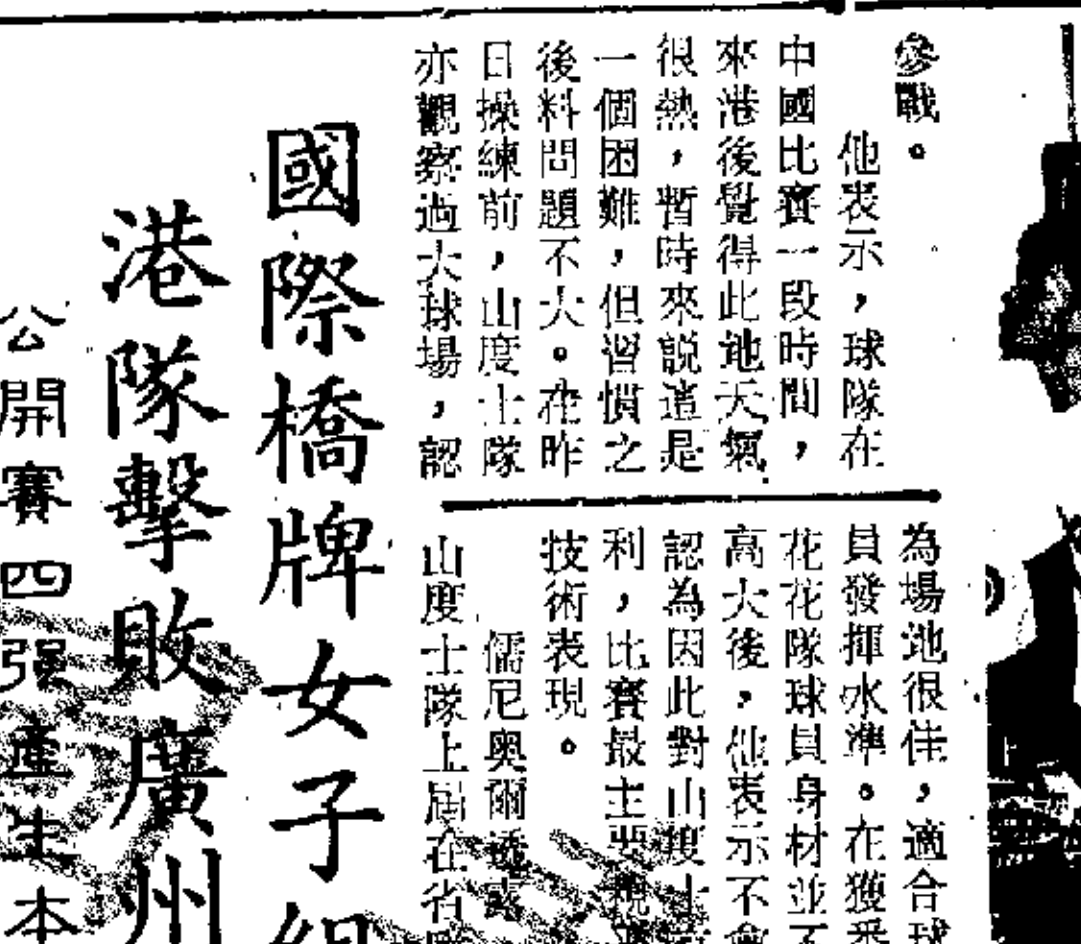 參戰。
他表示，球隊在
中國比賽一段時間，
來港後覺得此地天氣
很熱，暫時來説這是
一個困難，但習慣之
後料問題不大。在昨
日操練前，山度士隊
亦觀察過大球場，認
為場地很佳，適合球
員發揮水準。在獲悉
花花隊球員身材並不
高大後，他表示不會
認為因此對山度士
利，比賽最主要
技術表現。
儒尼奧爾透露
山度士隊上屆在省
國際橋牌女子組
港隊擊敗廣州
公開賽四强產生本